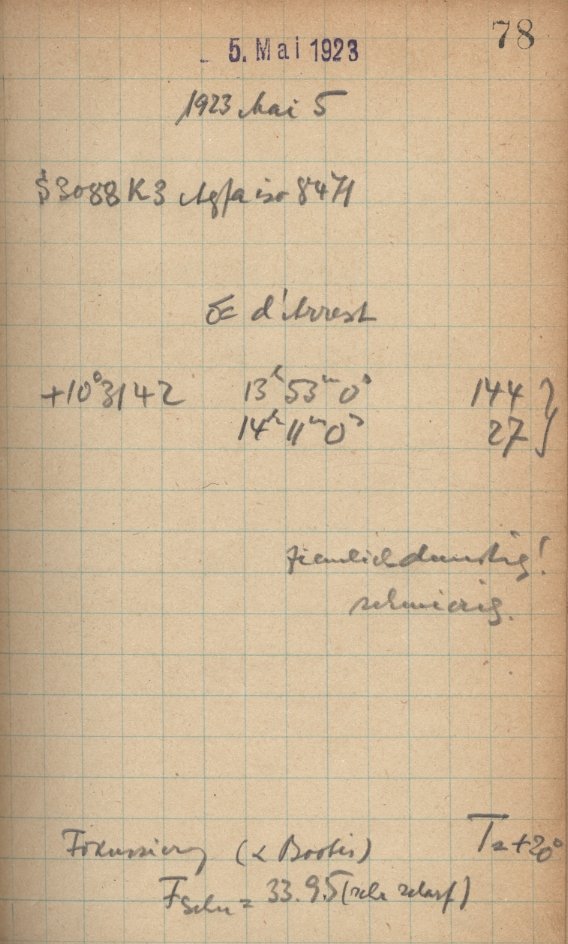 78
- 5. Mai 1923
1923 Mai 5
S3088 K3 Agfa iso 8471
d'Arrest
+10°3142 13ʰ53ᵐ0ˢ 144 }
14ʰ11ᵐ0ˢ 27 }
ziemlich dunstig!
schmierig.
Fokussierung (α Bootis) T = +20°
F = 33.95 (sehr scharf)